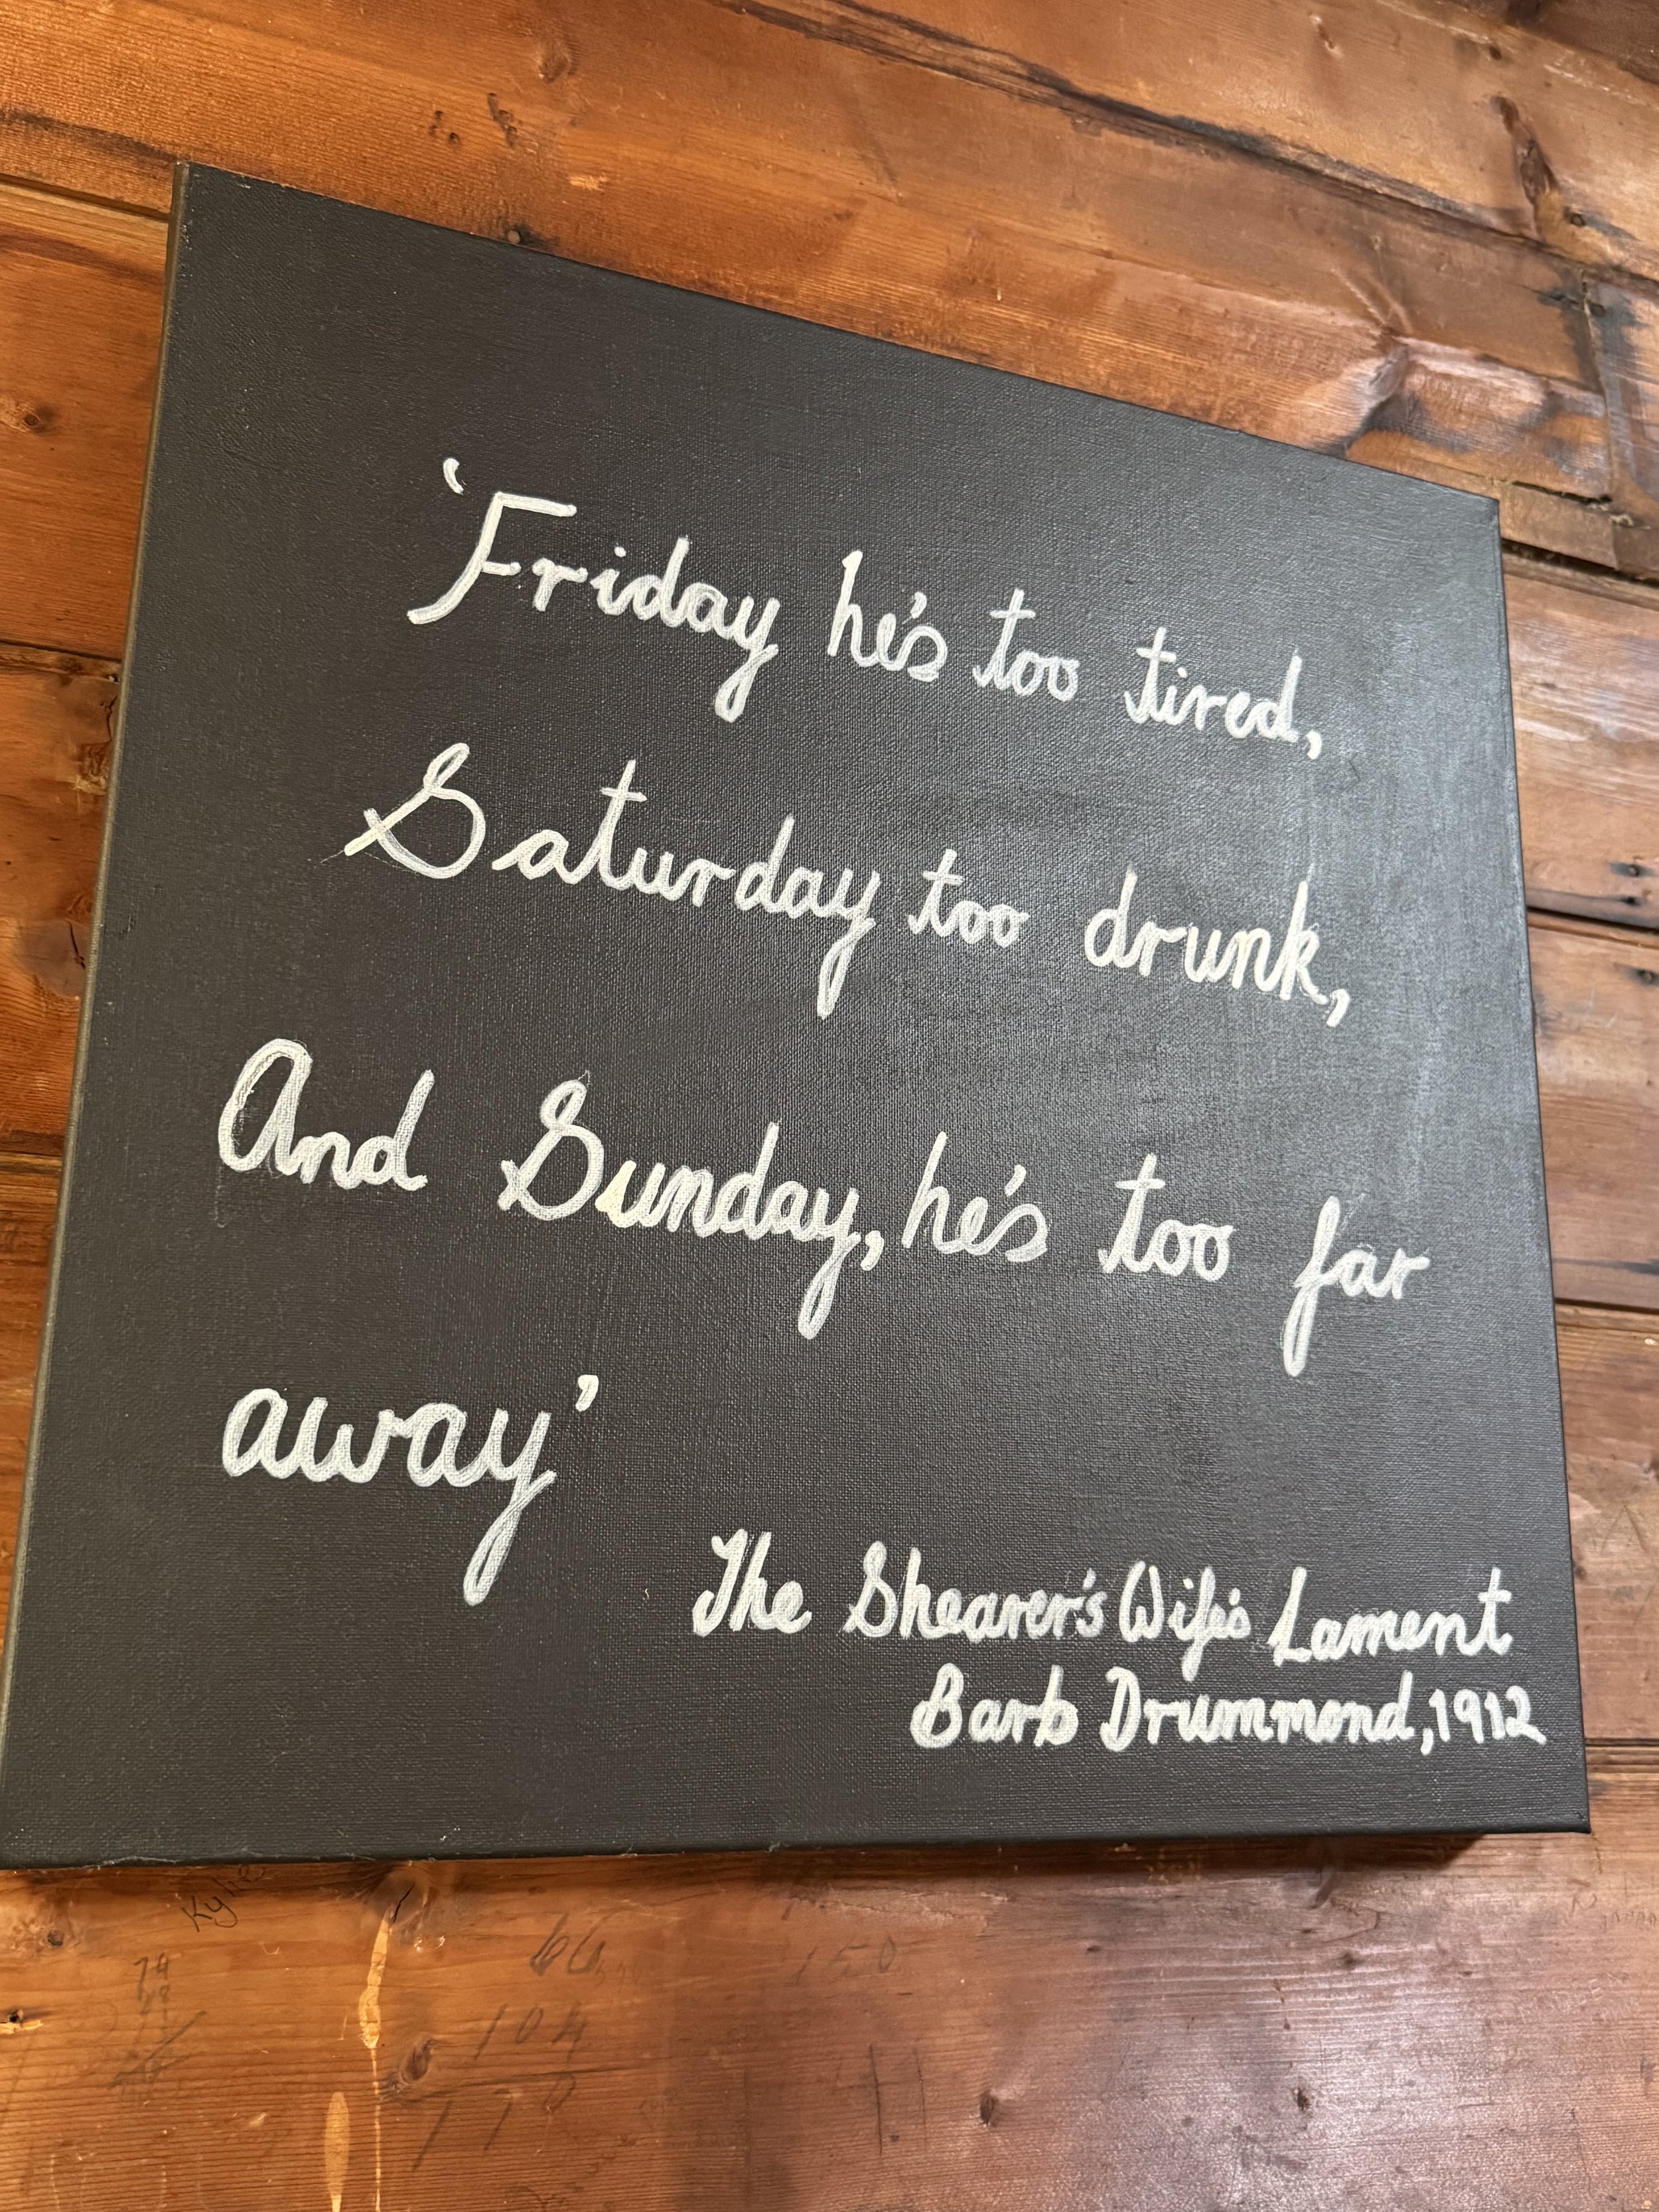 'Friday he's too tired,
Saturday too drunk,
And Sunday, he's too far
away'
The Shearer's Wife's Lament
Barb Drummond, 1912
Kylie
74
66
150
104
170